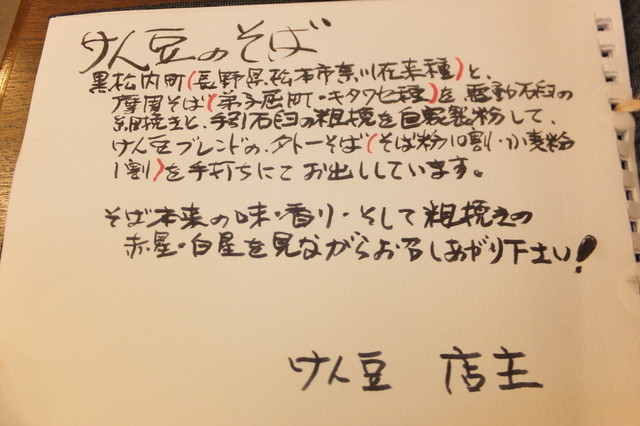 けん豆のそば
黒松内町(長野県松本市奈川在来種)と、
摩周そば(弟子屈町・キタワセ種)を、電動石臼の
細挽きと、手引石臼の粗挽を自家製粉して、
けん豆ブレンドの、外一そば(そば粉10割・小麦粉
1割)を手打ちにてお出ししています。
そば本来の味・香り・そして粗挽きの
赤星・白星を見ながらお召しあがり下さい!
けん豆 店主